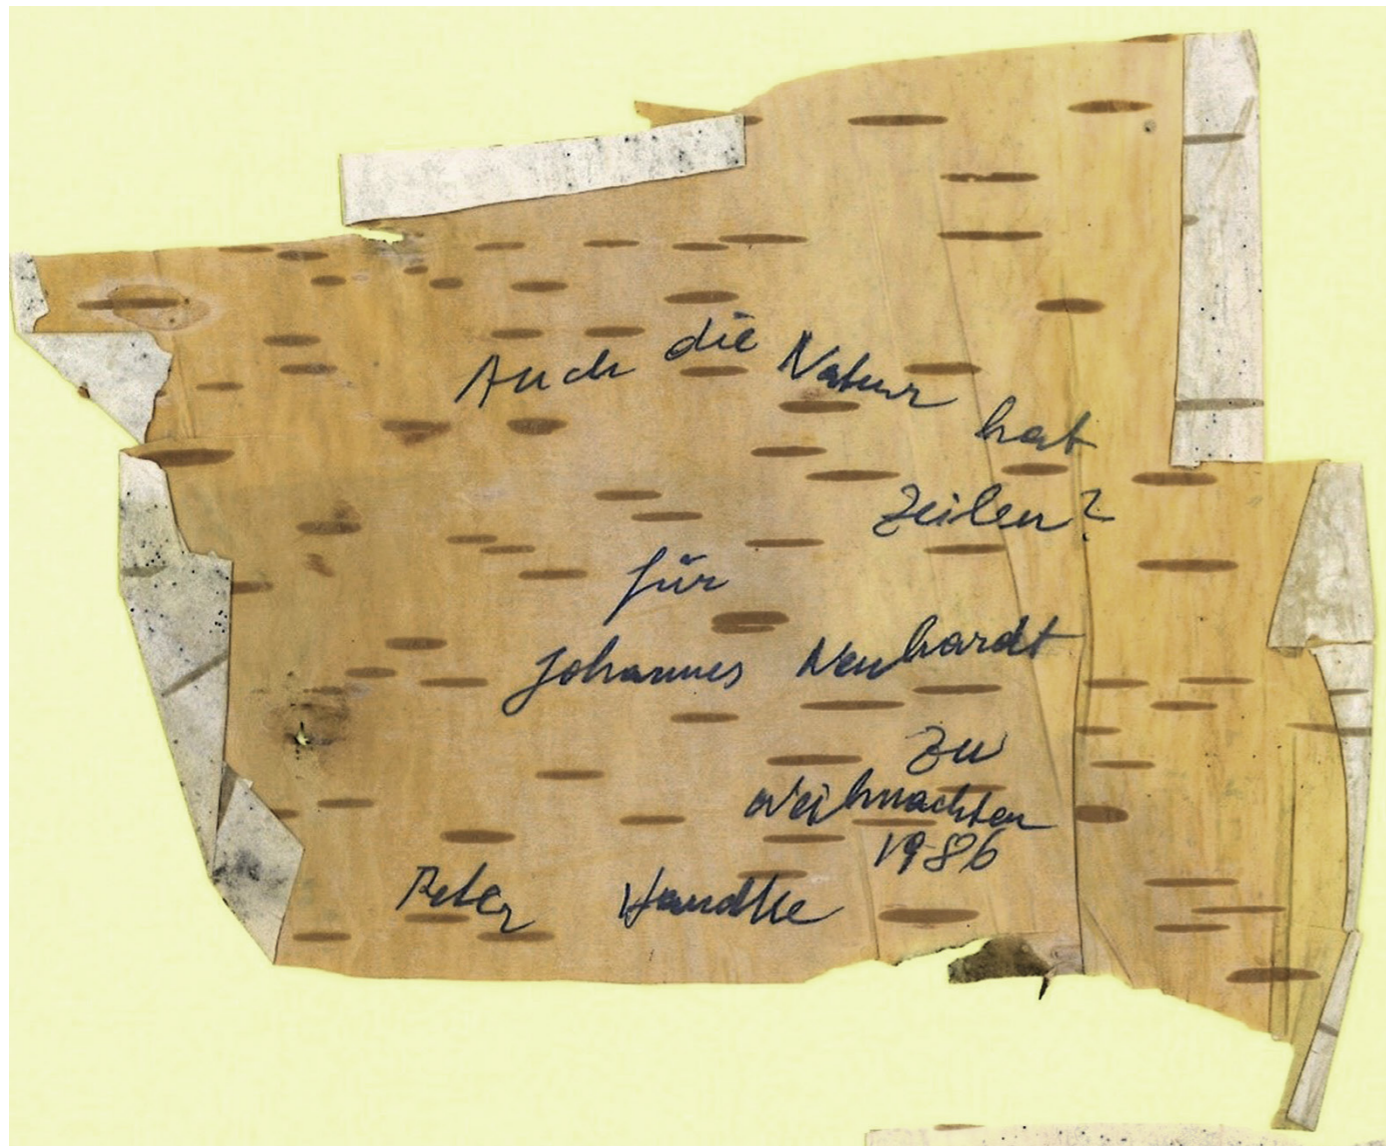 Auch die Natur hat
Zeilen?
für
Johannes Neuhardt
zu
Weihnachten
1986
Peter Handke